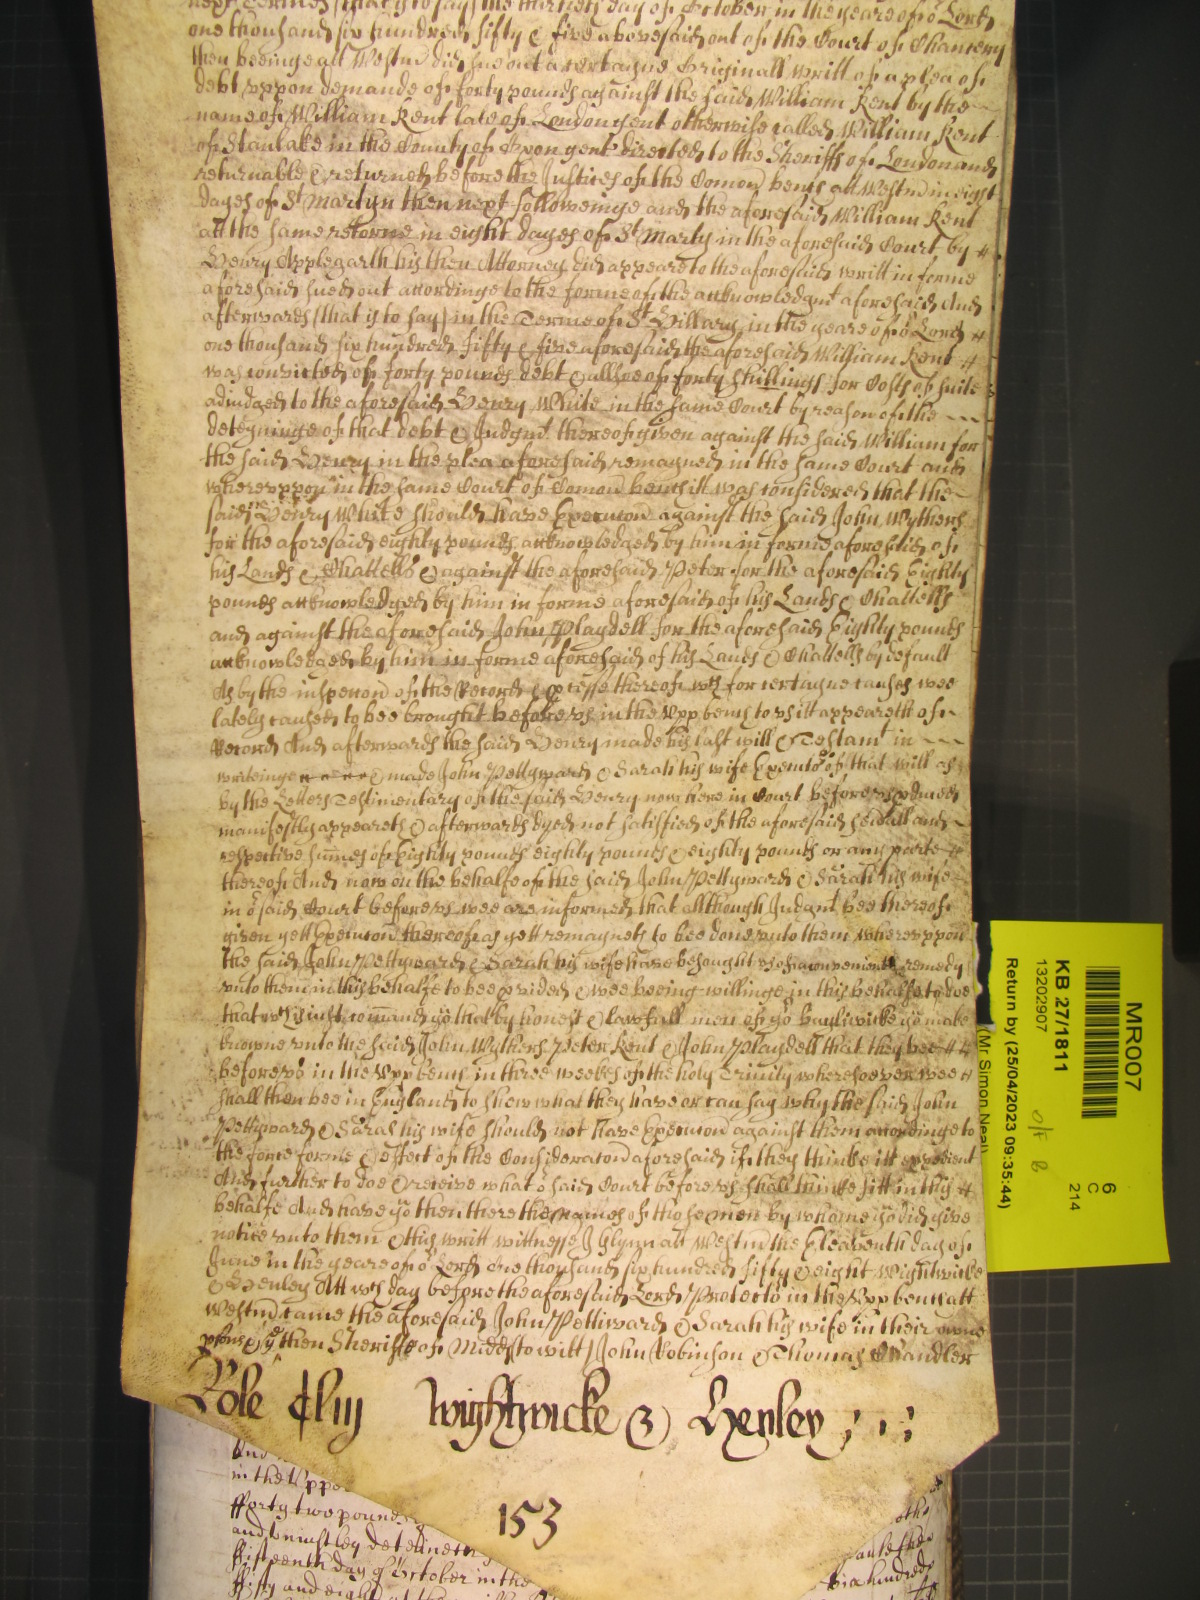 next Terme (that is to say) the thirtieth day of October in the yeare of or Lord
one thousand six hundred fifty & five abovesaid out of the Court of Chancery
then beeinge att Westmr did sue out a certayne Originall writt of a plea of
debt uppon demande of forty pounds against the said William Kent by the
name of William Kent late of London gent otherwise called William Kent
of Stanlake in the County of Oxon gent directed to the Sheriffs of London and
returnable & returned before the Justices of the Comon bench att Westmr in eight
dayes of St Martyn then next followeinge and the aforesaid William Kent
att the same retorne in eight dayes of St Martyn in the aforesaid Court by
Henry Applegarth his then Attorney did appeare to the aforesaid writt in forme
aforesaid sued out accordinge to the forme of the acknowledgmt aforesaid And
afterwards (that is to say) in the Terme of St Hillary in the yeare of or Lord
one thousand six hundred fifty & five aforesaid the aforesaid William Kent
was convicted of forty pounds debt & allsoe of forty shillings for Costs of suite
adiudged to the aforesaid Henry White in the same Court by reason of the
deteyninge of that debt & Judgmt thereof given against the said William for
the said Henry in the plea aforesaid remayned in the same Court and
whereuppon in the same Court of Comon bench itt was considered that the
said Henry White should have Execucon against the said John Wythers
for the aforesaid eighty pounds acknowledged by him in forme aforesaid of
his Lands & Chattells & against the aforesaid Peter for the aforesaid Eighty
pounds acknowledged by him in forme aforesaid of his Lands & Chattells
and against the aforesaid John Playdell for the aforesaid Eighty pounds
acknowledged by him in forme aforesaid of his Lands & Chattells by default
As by the inspeccon of the Record & processe thereof wch for certayne causes wee
lately caused to bee brought before us in the Upp bench to us itt appeareth of
Record And afterwards the said Henry made his last will & Testamt in
writeinge & made John Pettyward & Sarah his wife Executors of that will as
by the Letters Testimentary of the said Henry now here in Court before us produced
manifestly appeareth & afterwards dyed not satisfied of the aforesaid severall and
respective sumes of Eighty pounds eighty pounds & eighty pounds or any parte
thereof And now on the behalfe of the said John Pettyward & Sarah his wife
in or said Court before us wee are informed that allthough Judgmt bee thereof
given yett Execucon thereof as yett remayneth to bee done unto them whereuppon
the said John Pettyward & Sarah his wife have besought us of a convenient remedy
unto them in this behalfe to bee provided & wee beeing willinge in this behalfe to doe
that wch is iust comand you that by honest & lawfull men of yor bayliwicke you make
knowne unto the said John Wythers Peter Kent & John Playdell that they bee
before us in the Upp bench in three weekes of the holy Trinity wheresoever wee
shall then bee in England to shew what they have or can say why the said John
Pettyward & Sarah his wife should not have Execucon against them accordinge to
the force forme & effect of the Consideracon aforesaid if they thinke itt expedient
And further to doe & receive what or said Court before us shall thinke fitt in this
behalfe And have you then there the names of those men by whome you did give
notice unto them & this writt wittnesse J Glynn att Westmr the Eleaventh day of
June in the yeare of or Lord One thousand six hundred fifty & eight Wightwicke
& Henley Att wch day before the aforesaid Lord Protector in the Upp bench att
Westmr came the aforesaid John Pettiward & Sarah his wife in their owne
psons & the then Sheriffe of Midds to witt John Robinson & Thomas Chandler
Role cliij Wightwicke & Henley
153
in the Uppe
fforty two pound
and uniustley deteineth
ffifteenth day of October in the
ffifty and eight
MR007
6
C
214
KB 27/1811
13202907
Return by (25/04/2023 09:35:44)
(Mr Simon Neal)